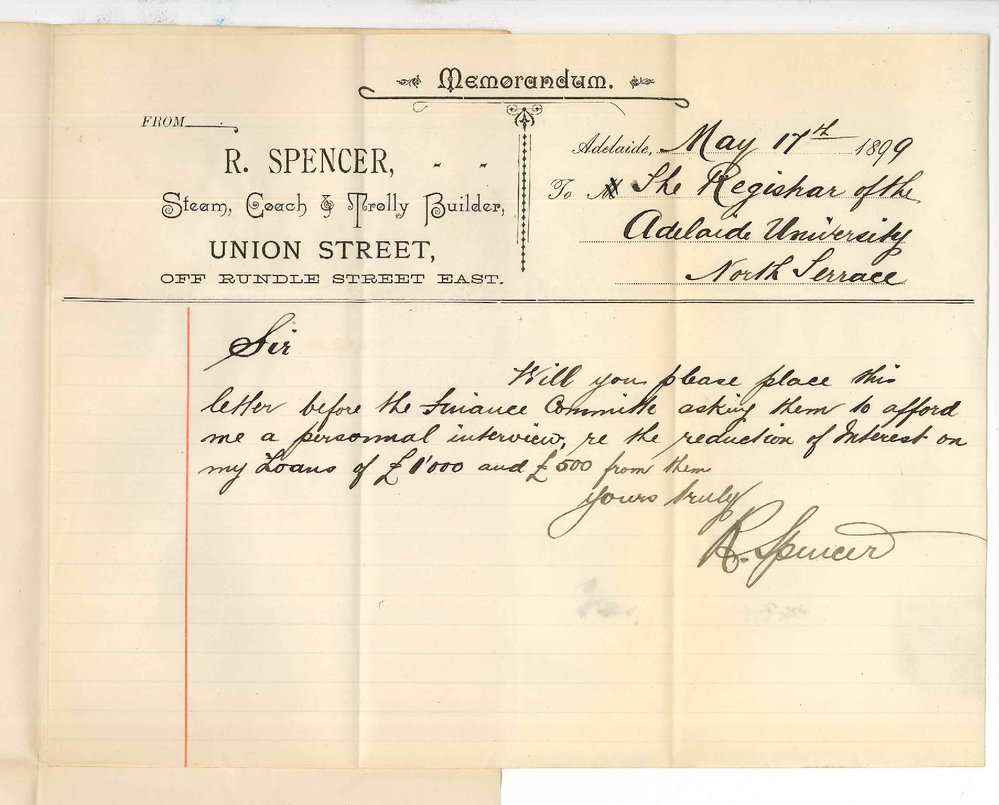 Memorandum.
FROM
R. SPENCER, - -
Steam, Coach & Trolly Builder,
UNION STREET,
OFF RUNDLE STREET EAST.
Adelaide, May 17th 1899
To M The Registrar of the
Adelaide University
North Terrace
Sir
Will you please place this
letter before the Finance Committe asking them to afford
me a personnal interview, re the reduction of Interest on
my Loans of £1'000 and £500 from them
yours truly
R. Spencer